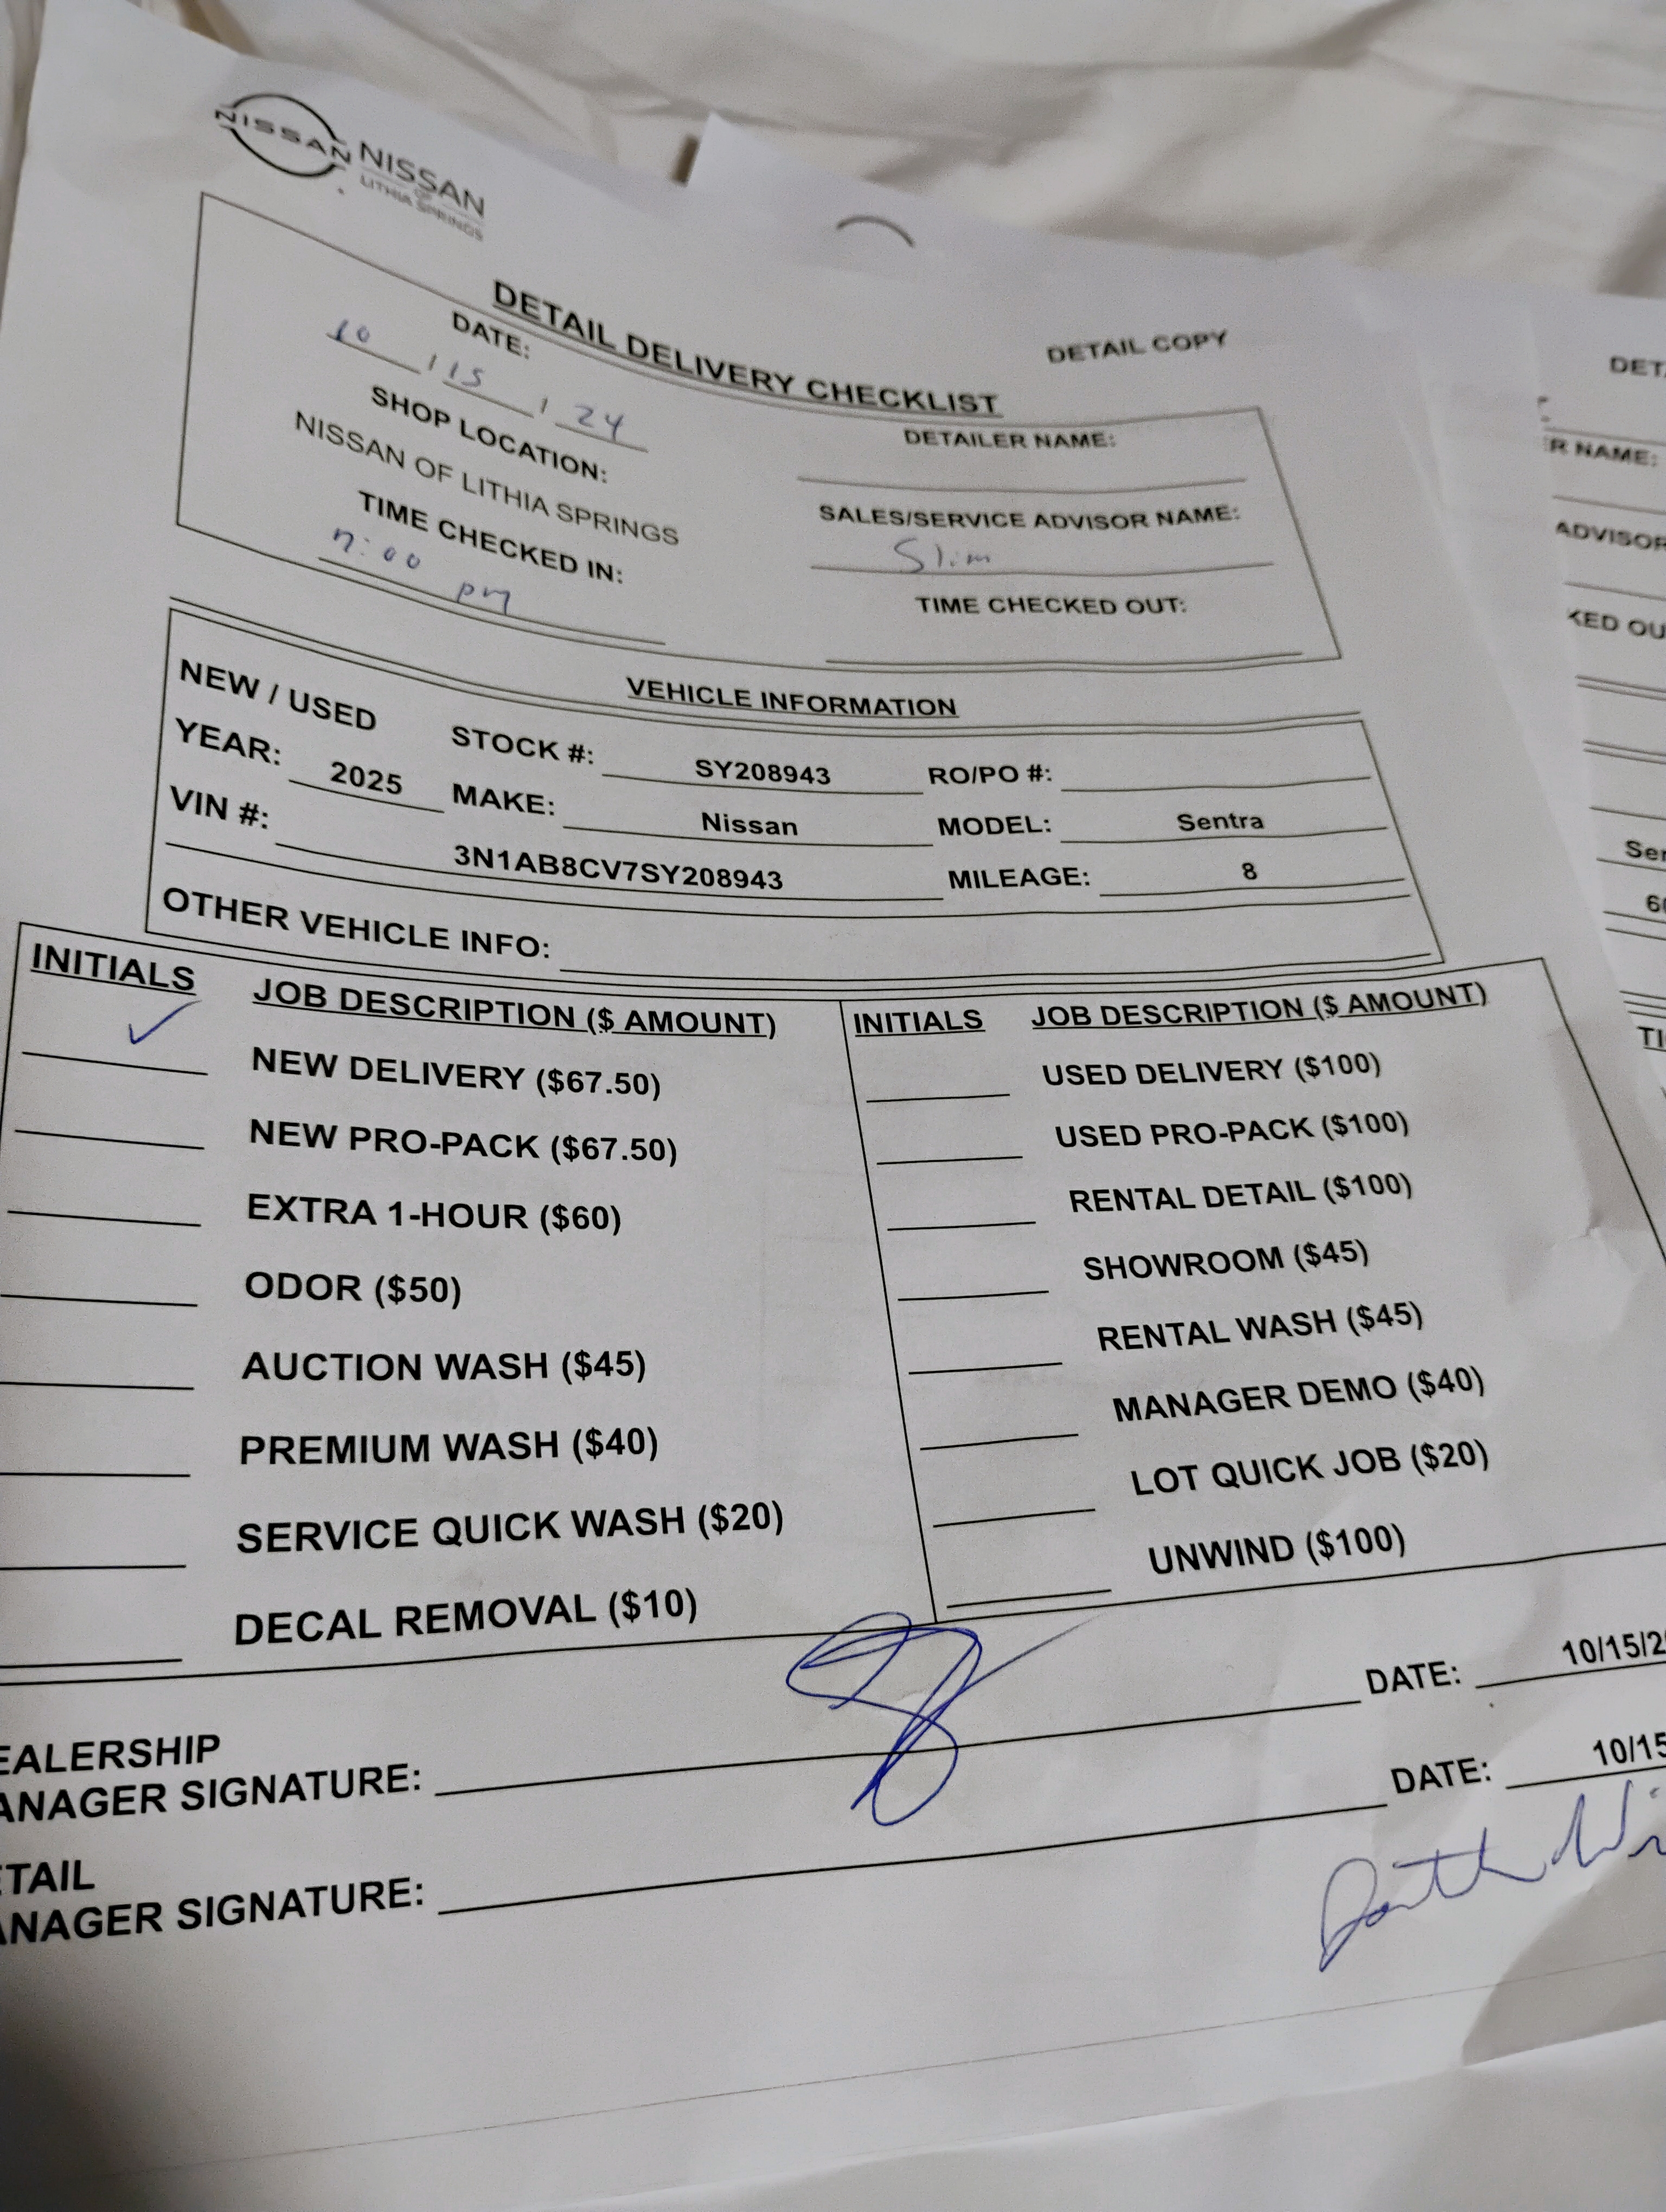 NISSAN
NISSAN
OF
LITHIA SPRINGS
DETAIL COPY
DETAIL DELIVERY CHECKLIST
DATE:
10 / 15 / 24
SHOP LOCATION:
NISSAN OF LITHIA SPRINGS
TIME CHECKED IN:
7:00 pm
DETAILER NAME:
SALES/SERVICE ADVISOR NAME:
Slim
TIME CHECKED OUT:
VEHICLE INFORMATION
NEW / USED STOCK #: SY208943 RO/PO #:
YEAR: 2025 MAKE: Nissan MODEL: Sentra
VIN #: 3N1AB8CV7SY208943 MILEAGE: 8
OTHER VEHICLE INFO:
INITIALS JOB DESCRIPTION ($ AMOUNT)
✓ NEW DELIVERY ($67.50)
NEW PRO-PACK ($67.50)
EXTRA 1-HOUR ($60)
ODOR ($50)
AUCTION WASH ($45)
PREMIUM WASH ($40)
SERVICE QUICK WASH ($20)
DECAL REMOVAL ($10)
INITIALS JOB DESCRIPTION ($ AMOUNT)
USED DELIVERY ($100)
USED PRO-PACK ($100)
RENTAL DETAIL ($100)
SHOWROOM ($45)
RENTAL WASH ($45)
MANAGER DEMO ($40)
LOT QUICK JOB ($20)
UNWIND ($100)
EALERSHIP
ANAGER SIGNATURE: DATE: 10/15/2
ETAIL
ANAGER SIGNATURE: DATE: 10/15
DET
R NAME:
ADVISOR
KED OU
Ser
6
TI